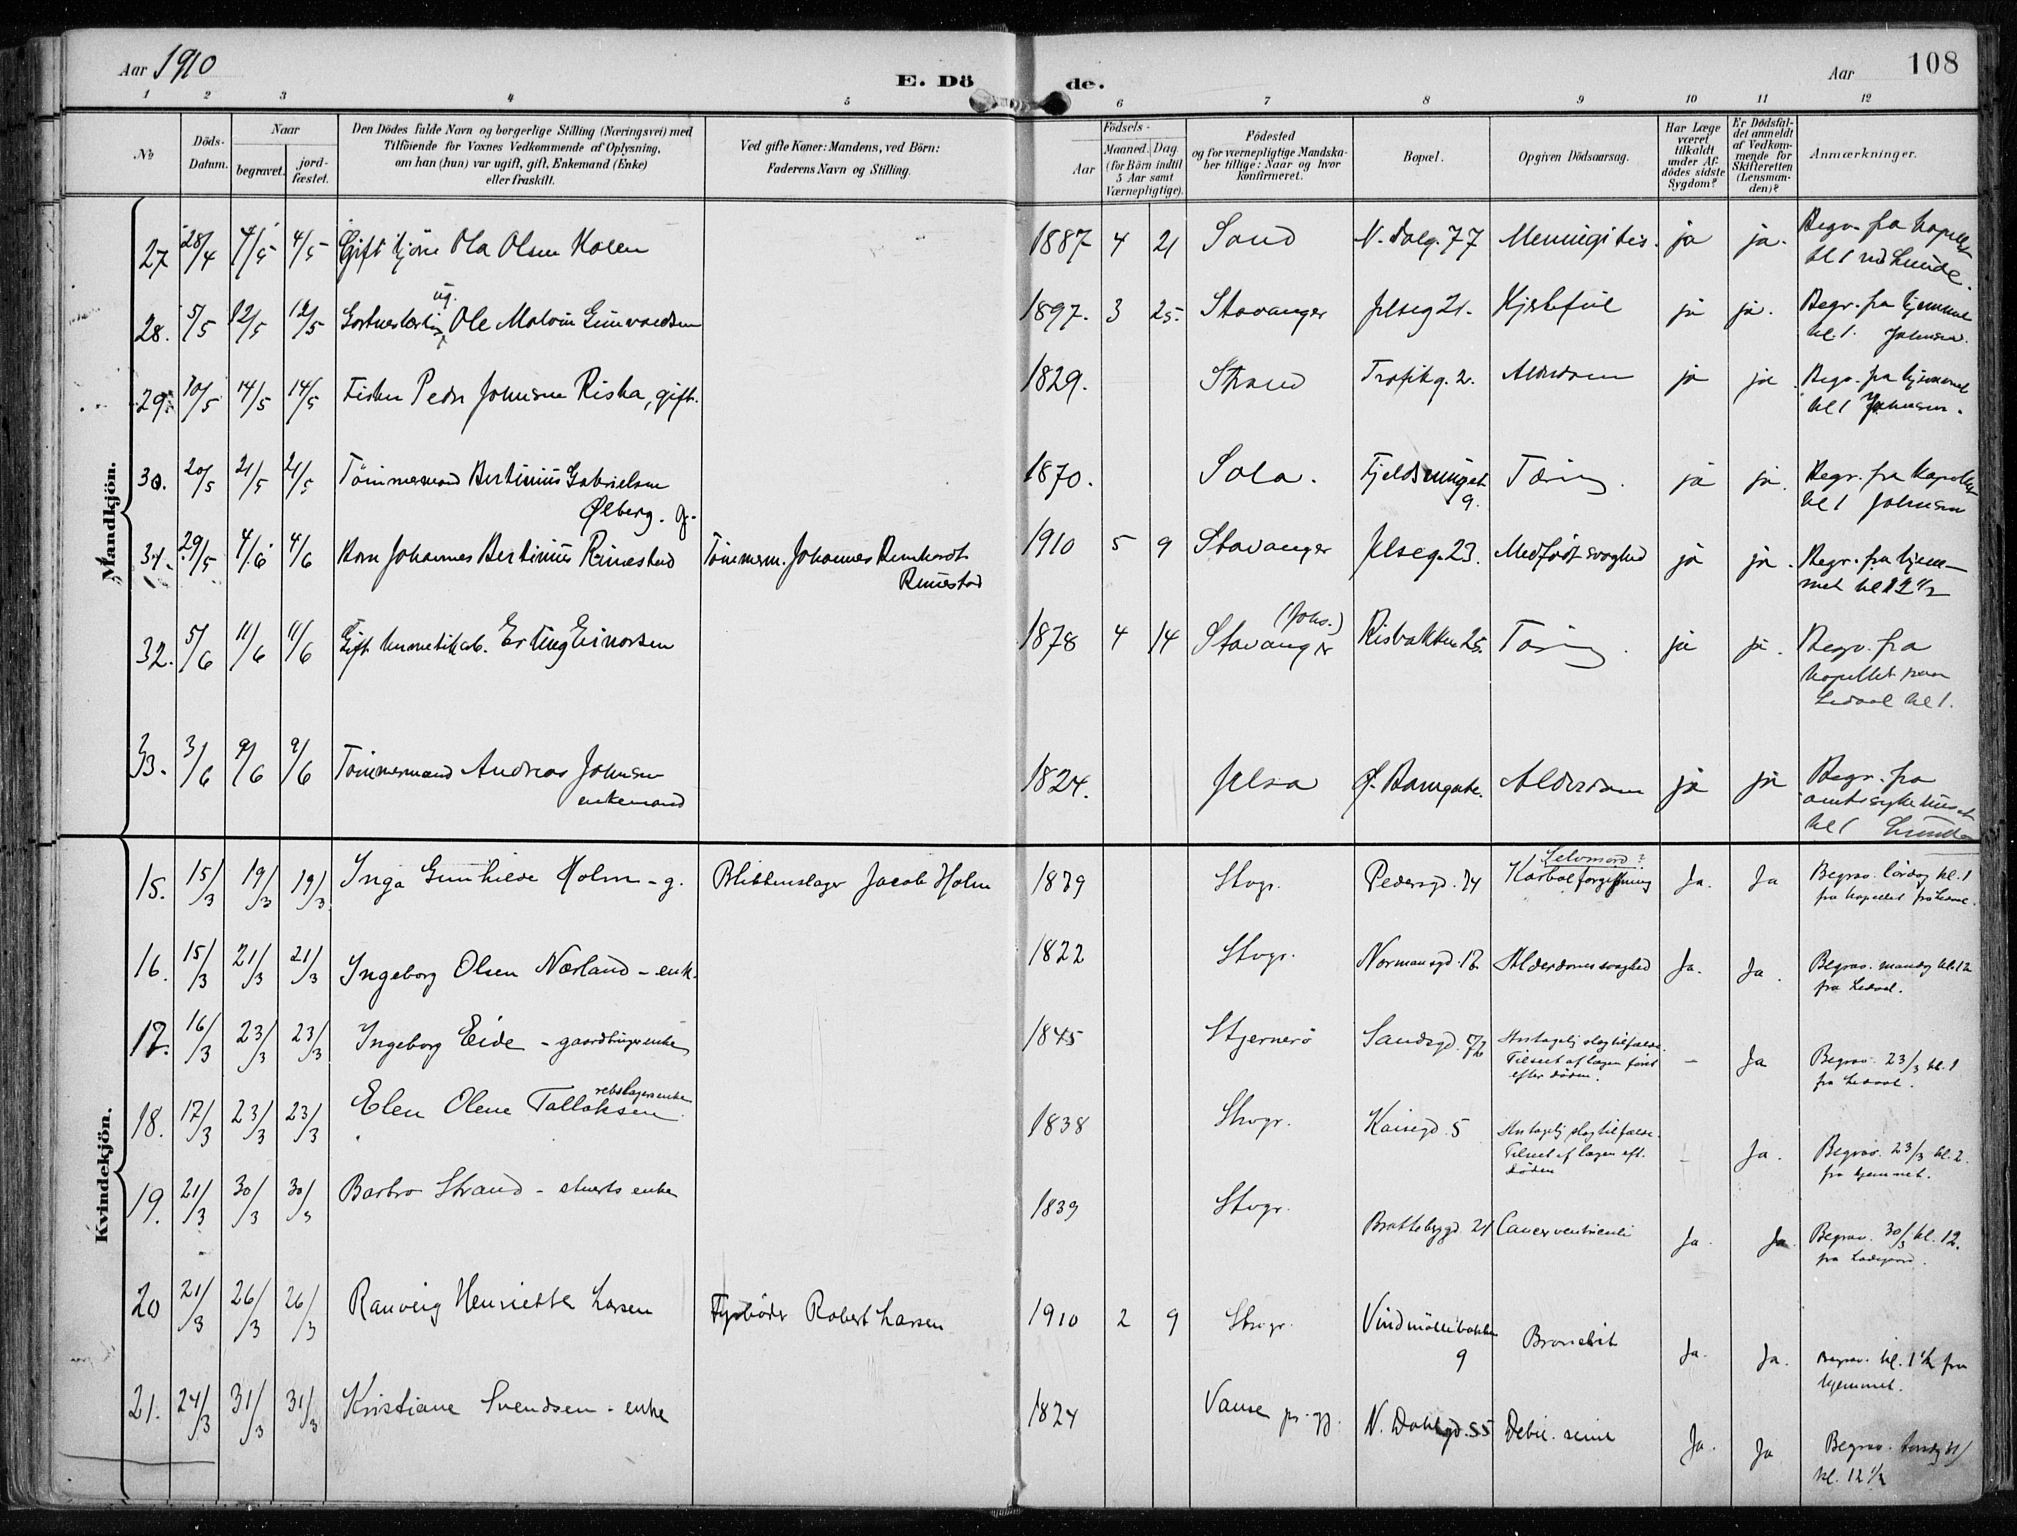 Aar 1910
E. Dö de.
Aar
108
1 2 3 4 5 6 7 8 9 10 11 12
No
Döds-Datum.
Naar
begravet.
jord-fæstet.
Den Dödes fulde Navn og borgerlige Stilling (Næringsvei) med
Tilföiende for Voxnes Vedkommende af Oplysning,
om han (hun) var ugift, gift, Enkemand (Enke)
eller fraskilt.
Ved gifte Koner: Mandens, ved Börn:
Faderens Navn og Stilling.
Födsels-
Aar
Maaned. Dag.
(for Börn indtil
5 Aar samt
Værnepligtige).
Födested
og for værnepligtige Mandska-
ber tillige: Naar og hvor
konfirmeret.
Bopæl.
Opgiven Dödsaarsag.
Har Læge
været
tilkaldt
under Af-
dödes sidste
Sygdom?
Er Dödsfal-
det anmeldt
af Vedkom-
mende for
Skifteretten
(Lensman-
den)?
Anmærkninger.
Mandkjön.
27 28/4 4/5 4/5 Gift Ola Olsen 1887 4 21 Sand N. Dalg. 77 Meningites. ja ja. Begr. fra kapellet
kl 1 ved Lunde.
ug.
28. 5/5 12/5 12/5 Ole Malvin Gunvaldsen 1897. 3 25. Stavanger Jelseg 21. Hjertefeil ja ja. Begr. fra hjemmet
kl. 1. Johnsen.
29. 10/5 14/5 14/5 Fisker Peder Johnsen Riska, gift. 1829. Strand Trafikg. 2. Alderdom ja ja. Begr. fra hjemmet
kl 1 Johnsen.
30. 20/5 21/5 21/5 Tömmermand Bertinius Gabrielsen 1870. Sola. Tæring ja ja. Begr. fra Kapellet
Ølberg. g. 9. kl 1 Johnsen
31. 29/5 4/6 4/6 Barn Johannes Bertinius Rimestad Tömmerm. Johannes Reinhardt 1910 5 9 Stavanger Jelseg. 23. Medfödt svaghed ja ja. Begr. fra hjem-
Rimestad met kl 12 1/2
32. 5/6 11/6 11/6 Gift Erling Einarsen 1878 4 14 Stavanger (Johs.) Risbakken 25. Tæring. ja ja. Begr. fra
kapellet paa
Ledaal kl 1.
33. 3/6 9/6 9/6 Tömmermand Andreas Johnsen 1824. Jelsa Ø. Alderdom ja ja Begr. fra
enkemand amtssykehuset
kl 1 Lunde
Kvindekjön.
Selvmord?
15. 15/3 19/3 19/3 Inga Gunhilde Holm - g. Blikkenslager Jacob Holm 1879 Stvgr. Pedersgd. 74 Karbolforgiftning Ja. Ja Begrav. lördag kl. 1
fra kapellet
16. 15/3 21/3 21/3 Ingeborg Olsen Nærland - enk. 1822 Stvgr. Normansgd. 12 Alderdomssvaghed Ja. Ja. Begrav. mandag kl. 12
fra Ledaal.
17. 16/3 23/3 23/3 Ingeborg Eide - gaardbrugerenke 1845 Stjernerö Sandsgd. Antagelig slagtilfælde.
Tilseet af lægen först
efter döden. - Ja Begrav. 23/3 kl. 1
fra Ledaal.
18. 17/3 23/3 23/3 Elen Olene Tallaksen rebslagerenke 1838 Stvgr. Kaisegd. 5 Antagelig slagtilfælde.
Tilseet af lægen eft.
döden - Ja. Begrav. 23/3 kl. 2
fra hjemmet.
19. 21/3 30/3 30/3 Barbro Strand - stuerts enke 1839 Stvgr. Brattebrygd. 21 Cancer ventriculi Ja. Ja. Begrav. 30/3 kl. 12.
fra Ladegaard.
20 21/3 26/3 26/3 Ranveig Henriette Larsen Fyrböder Robert Larsen 1910 2 9 Stvgr. Vindmöllebakken
9 Bronchit Ja. Ja. Begrav. kl. 1 1/2 fra
hjemmet.
21. 24/3 31/3 31/3 Kristiane Svendsen - enke 1824 Vanse pr. gj. N. Dahlsgd. 55 Debil. senil Ja. Ja Begrav. torsdag
kl. 12 1/2